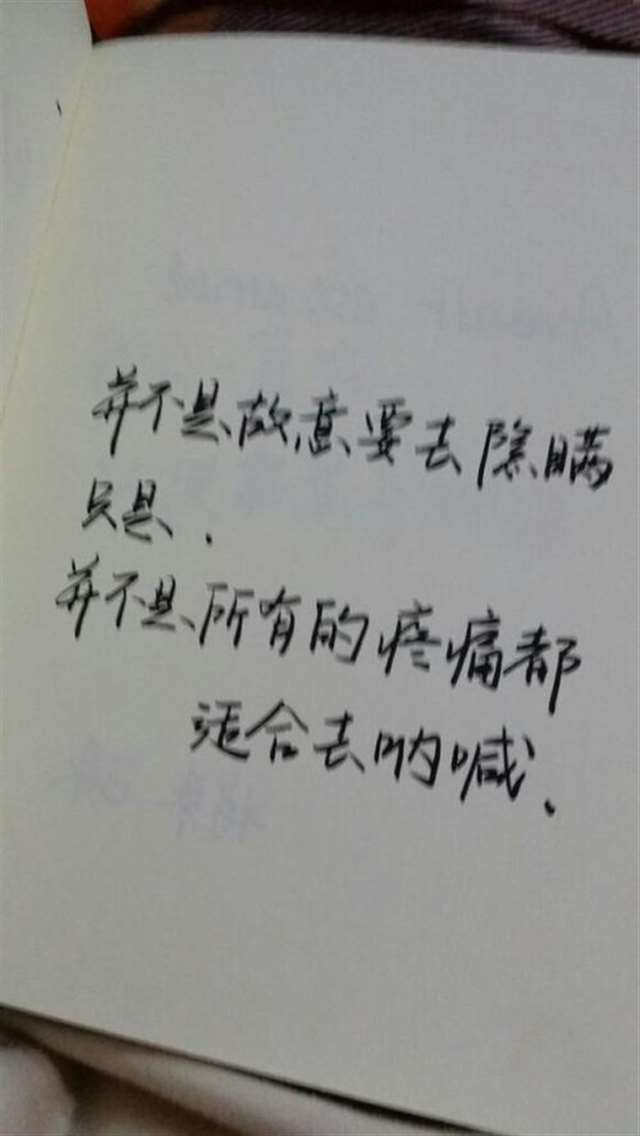 并不是故意要去隐瞒
只是.
并不是所有的疼痛都
适合去呐喊.